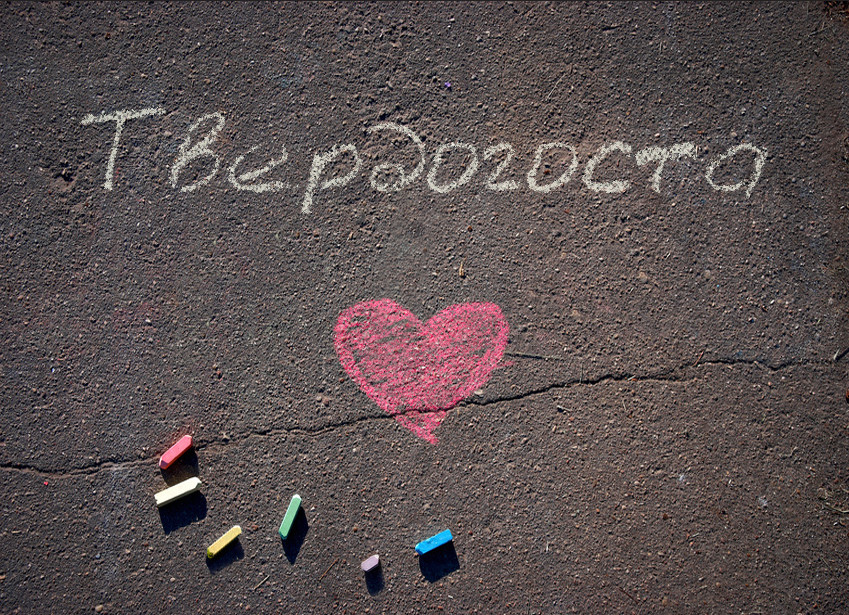 Твердогоста